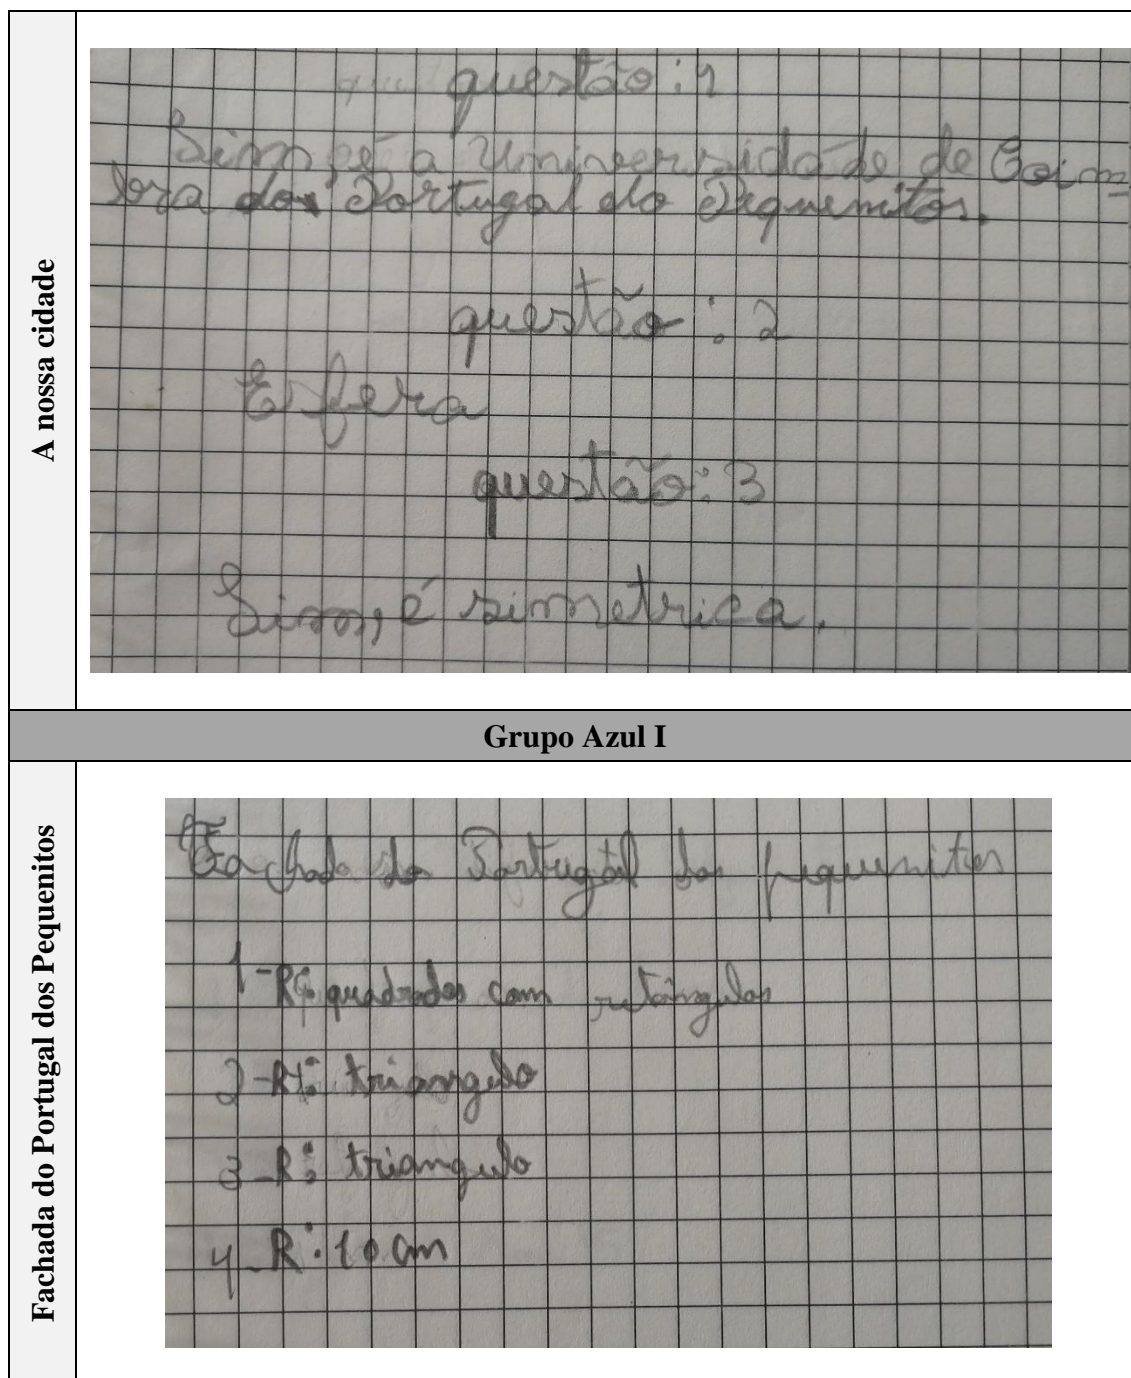 A nossa cidade
questão: 1
Sim, é a Universidade de Coim-
bra dos Portugal do Pequenitos.
questão: 2
Esfera
questão: 3
Sim, é simetrica.
Grupo Azul I
Fachada do Portugal dos Pequenitos
Fachada do Portugal dos pequenitos
1-R: quadrados com retângulos
2-R: triangulo
3-R: triangulo
4-R: 10 cm